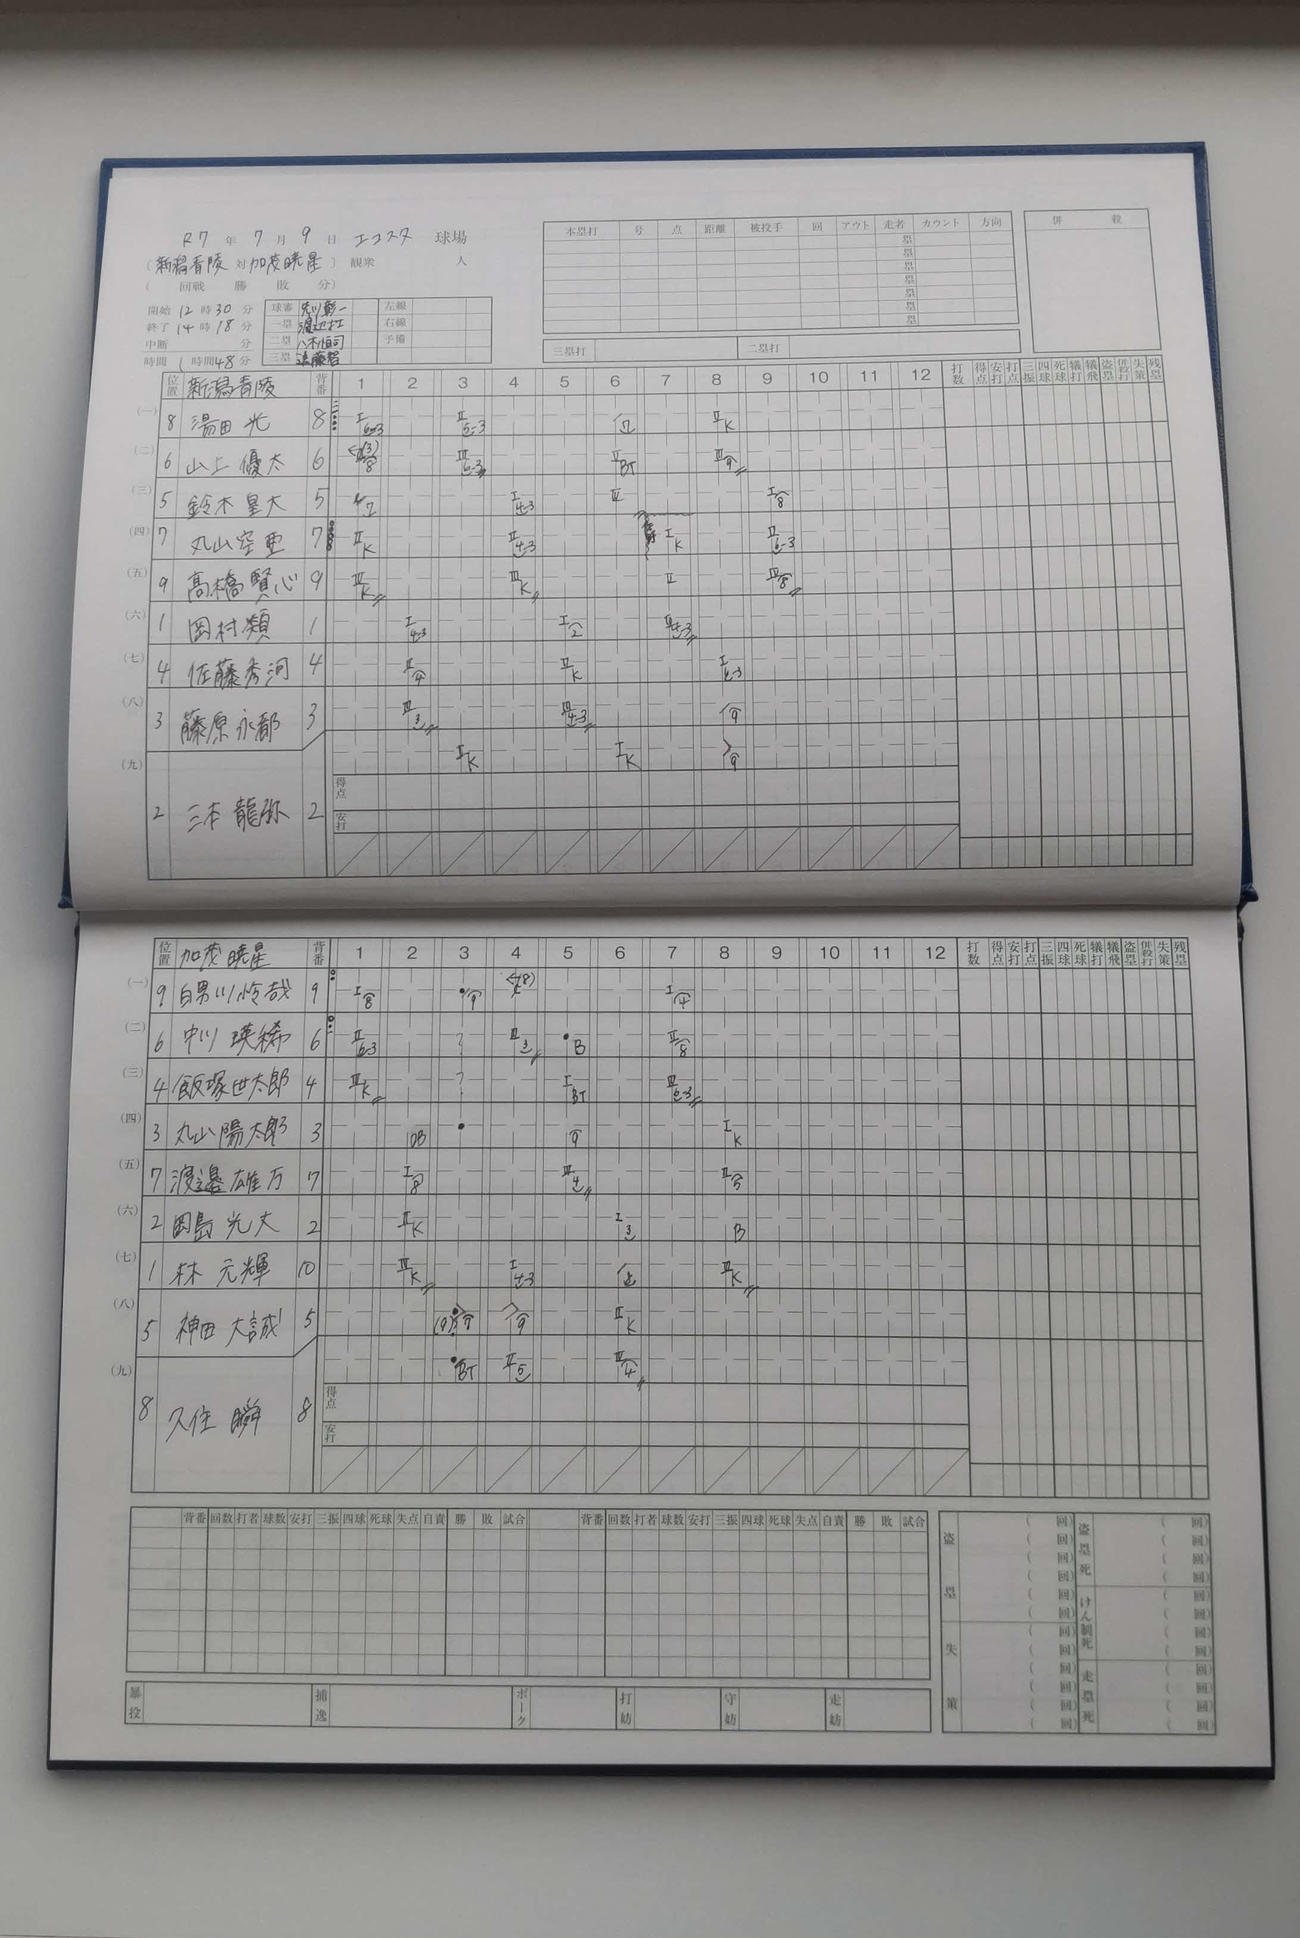 R7 年 7 月 9 日 エコスタ 球場
( 新潟青陵 対 加茂暁星 ) 観衆 人
( 回戦 勝 敗 分 )
開始 12 時 30 分
終了 14 時 18 分
中断 分
時間 1 時間 48 分
球審 左線
一塁 渡辺 右線
二塁 八木恒司 予備
三塁 遠藤智
本塁打 号 点 距離 被投手 回 アウト 走者 カウント 方向
塁
塁
塁
塁
塁
塁
塁
三塁打 二塁打
併 殺
位置 新潟青陵 背番 1 2 3 4 5 6 7 8 9 10 11 12 打数 得点 安打 打点 三振 四球 死球 犠打 犠飛 盗塁 併殺打 失策 残塁
(一) 8 湯田 光 8 I 6-3 II 5-3 II K
(二) 6 山上 優太 6 8 III 6-3 II BT III 9
(三) 5 鈴木 星大 5 7 I 4-3 I 8
(四) 7 丸山 空亜 7 II K II 4-3 I K II 6-3
(五) 9 高橋 賢心 9 III K III K II III 8
(六) 1 岡村 類 1 I 4-3 I 2 III 4-3
(七) 4 佐藤 秀河 4 II 4 II K I 6-3
(八) 3 藤原 永都 3 III 3 III 4-3 9
(九) 2 三本 龍弥 2 I K I K 9
得点
安打
位置 加茂暁星 背番 1 2 3 4 5 6 7 8 9 10 11 12 打数 得点 安打 打点 三振 四球 死球 犠打 犠飛 盗塁 併殺打 失策 残塁
(一) 9 白男川 怜哉 9 I 8 9 I 4
(二) 6 中川 瑛稀 6 II 6-3 III 3 B II 8
(三) 4 飯塚 世太郎 4 III K I BT III 6-3
(四) 3 丸山 陽太郎 3 DB 9 I K
(五) 7 渡邉 雄万 7 I 8 III 4 II 5
(六) 2 田島 光大 2 II K I 3 B
(七) 1 林 元輝 10 III K I 4-3 III K
(八) 5 神田 大誠 5 (9) 9 9 II K
(九) 8 久住 瞬 8 BT II 5 III 4
得点
安打
背番 回数 打者 球数 安打 三振 四球 死球 失点 自責 勝 敗 試合 背番 回数 打者 球数 安打 三振 四球 死球 失点 自責 勝 敗 試合
盗塁 ( 回) 盗塁死 ( 回)
けん制死 ( 回)
失策 ( 回) 走塁死 ( 回)
暴投 捕逸 ボーク 打妨 守妨 走妨